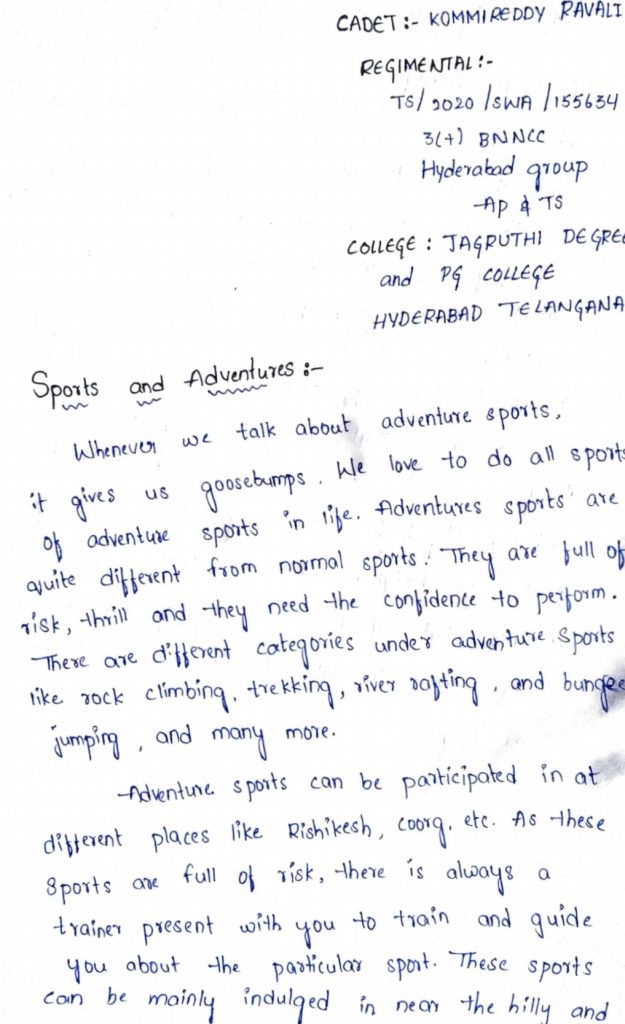 CADET :- KOMMIREDDY RAVALI
REGIMENTAL :-
TS/2020/SWA/155634
3(+) BNNCC
Hyderabad group
-Ap & TS
COLLEGE : JAGRUTHI DEGREE
and PG COLLEGE
HYDERABAD TELANGANA
Sports and Adventures :-
Whenever we talk about adventure sports,
it gives us goosebumps. We love to do all sports
of adventure sports in life. Adventures sports are
quite different from normal sports. They are full of
risk, thrill and they need the confidence to perform.
There are different categories under adventure sports
like rock climbing, trekking, river rafting, and bungee
jumping, and many more.
Adventure sports can be participated in at
different places like Rishikesh, Coorg, etc. As these
sports are full of risk, there is always a
trainer present with you to train and guide
you about the particular sport. These sports
can be mainly indulged in near the hilly and